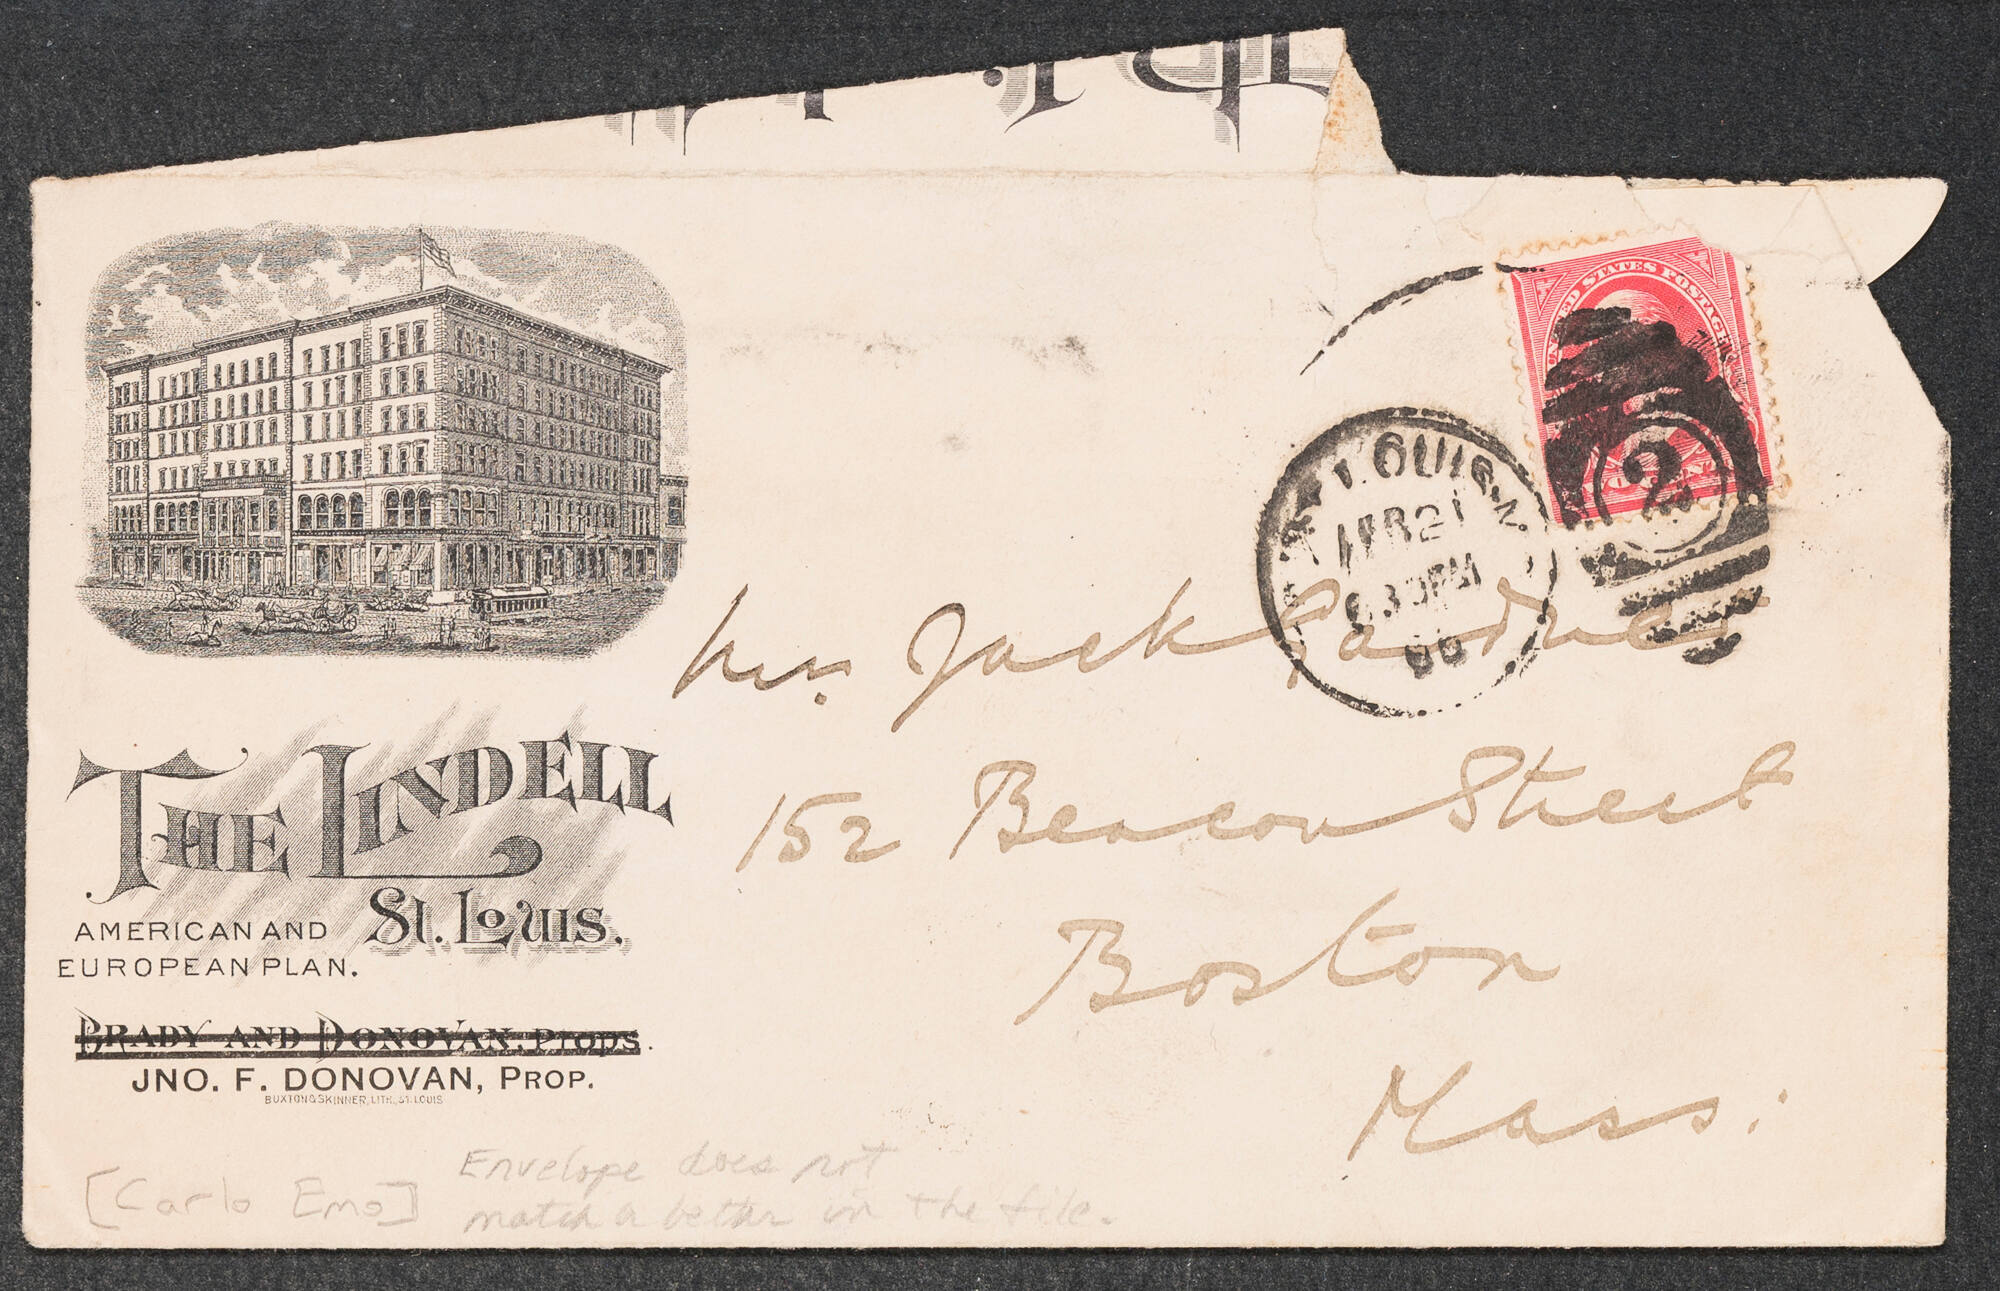 UNITED STATES POSTAGE
ST. LOUIS,
APR 21
630PM
96
2
THE LINDELL
ST. LOUIS.
AMERICAN AND
EUROPEAN PLAN.
BRADY AND DONOVAN, Props.
JNO. F. DONOVAN, PROP.
BUXTON & SKINNER, LITH., ST. LOUIS
Mrs. Jack Gardner
152 Beacon Street
Boston
Mass.
[Carlo Emo]
Envelope does not
match a letter in the file.